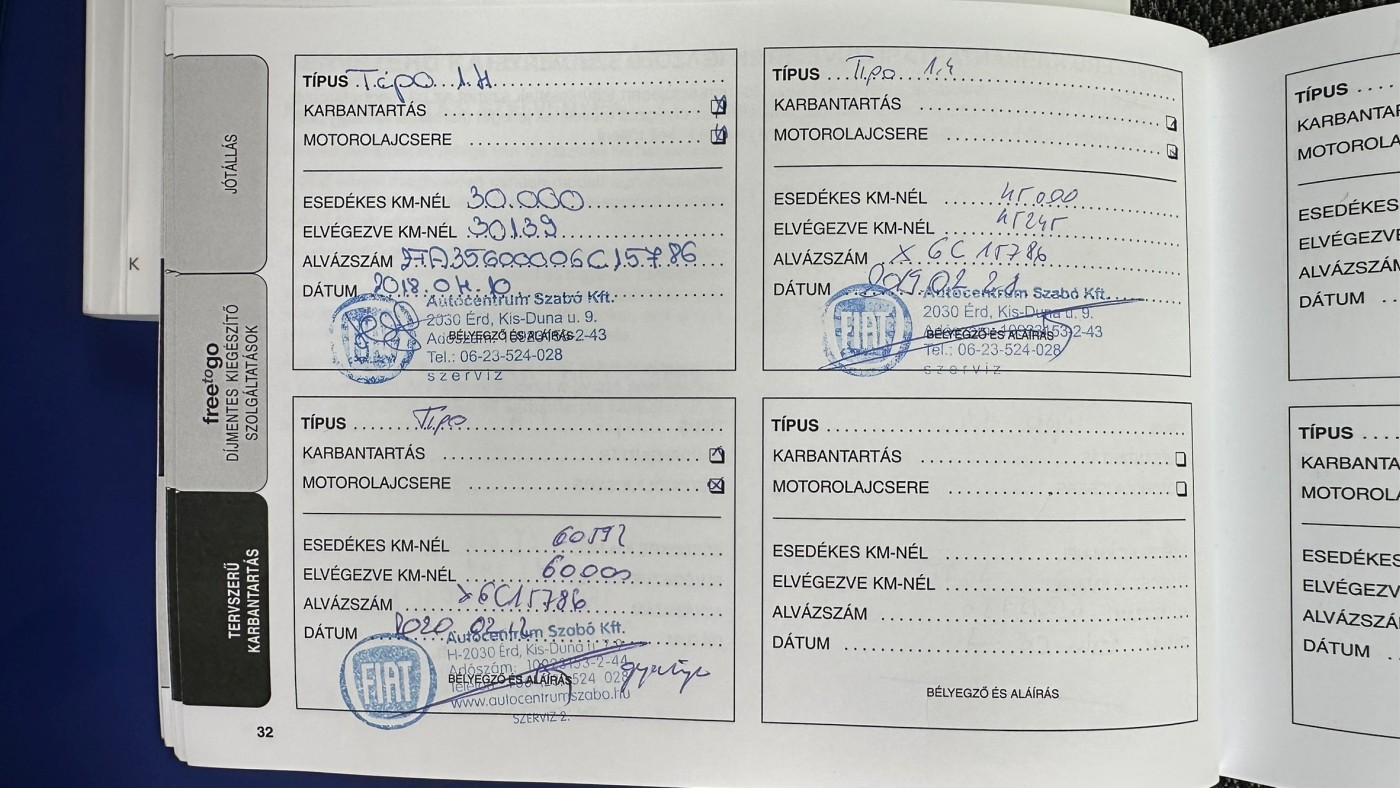 JÓTÁLLÁS
freetogo
DÍJMENTES KIEGÉSZÍTŐ
SZOLGÁLTATÁSOK
TERVSZERŰ
KARBANTARTÁS
K
TÍPUS Tipo 1.4
KARBANTARTÁS
MOTOROLAJCSERE
ESEDÉKES KM-NÉL 30.000
ELVÉGEZVE KM-NÉL 30139
ALVÁZSZÁM ZFA35600006C15786
DÁTUM 2018.04.10
Autocentrum Szabó Kft.
2030 Érd, Kis-Duna u. 9.
BÉLYEGZŐ ÉS ALÁÍRÁS
Tel.: 06-23-524-028
szerviz
TÍPUS Tipo 1.4
KARBANTARTÁS
MOTOROLAJCSERE
ESEDÉKES KM-NÉL 45.000
ELVÉGEZVE KM-NÉL 45245
ALVÁZSZÁM X 6C 15786
DÁTUM 2019.02.21
FIAT
Autocentrum Szabó Kft.
2030 Érd, Kis-Duna u. 9.
Adószám: 10933153-2-43
BÉLYEGZŐ ÉS ALÁÍRÁS
Tel.: 06-23-524-028
szerviz
TÍPUS Tipo
KARBANTARTÁS
MOTOROLAJCSERE
ESEDÉKES KM-NÉL 60592
ELVÉGEZVE KM-NÉL 60000
ALVÁZSZÁM X6C15786
DÁTUM 2020.02.12
FIAT
Autocentrum Szabó Kft.
H-2030 Érd, Kis-Duna u.
Adószám: 10933153-2-44
BÉLYEGZŐ ÉS ALÁÍRÁS
524 028
www.autocentrumszabo.hu
SZERVIZ 2.
TÍPUS
KARBANTARTÁS
MOTOROLAJCSERE
ESEDÉKES KM-NÉL
ELVÉGEZVE KM-NÉL
ALVÁZSZÁM
DÁTUM
BÉLYEGZŐ ÉS ALÁÍRÁS
32
TÍPUS
KARBANTA
MOTOROLA
ESEDÉKES
ELVÉGEZV
ALVÁZSZÁM
DÁTUM
TÍPUS
KARBANTA
MOTOROLA
ESEDÉKES
ELVÉGEZV
ALVÁZSZÁ
DÁTUM